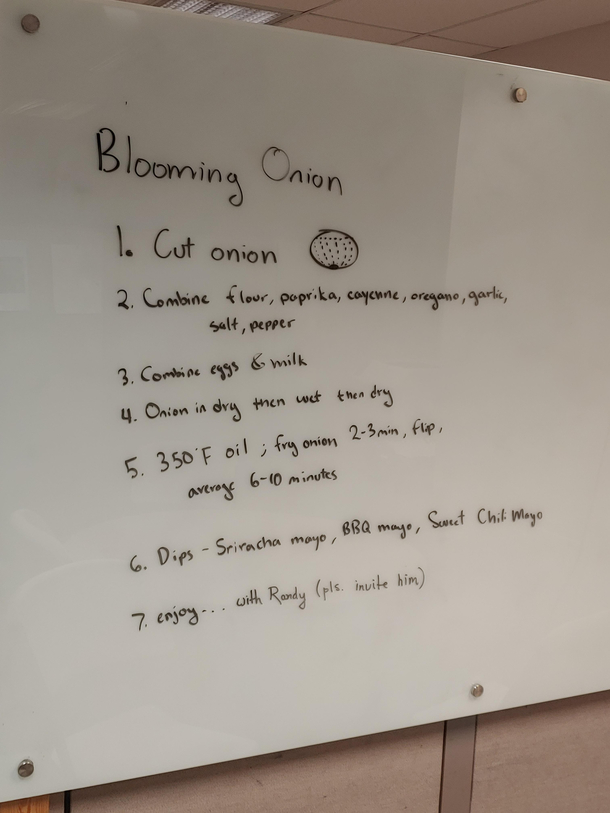 Blooming Onion
1. Cut onion
2. Combine flour, paprika, cayenne, oregano, garlic,
salt, pepper
3. Combine eggs & milk
4. Onion in dry then wet then dry
5. 350°F oil ; fry onion 2-3min, flip,
average 6-10 minutes
6. Dips - Sriracha mayo, BBQ mayo, Sweet Chili Mayo
7. enjoy... with Randy (pls. invite him)